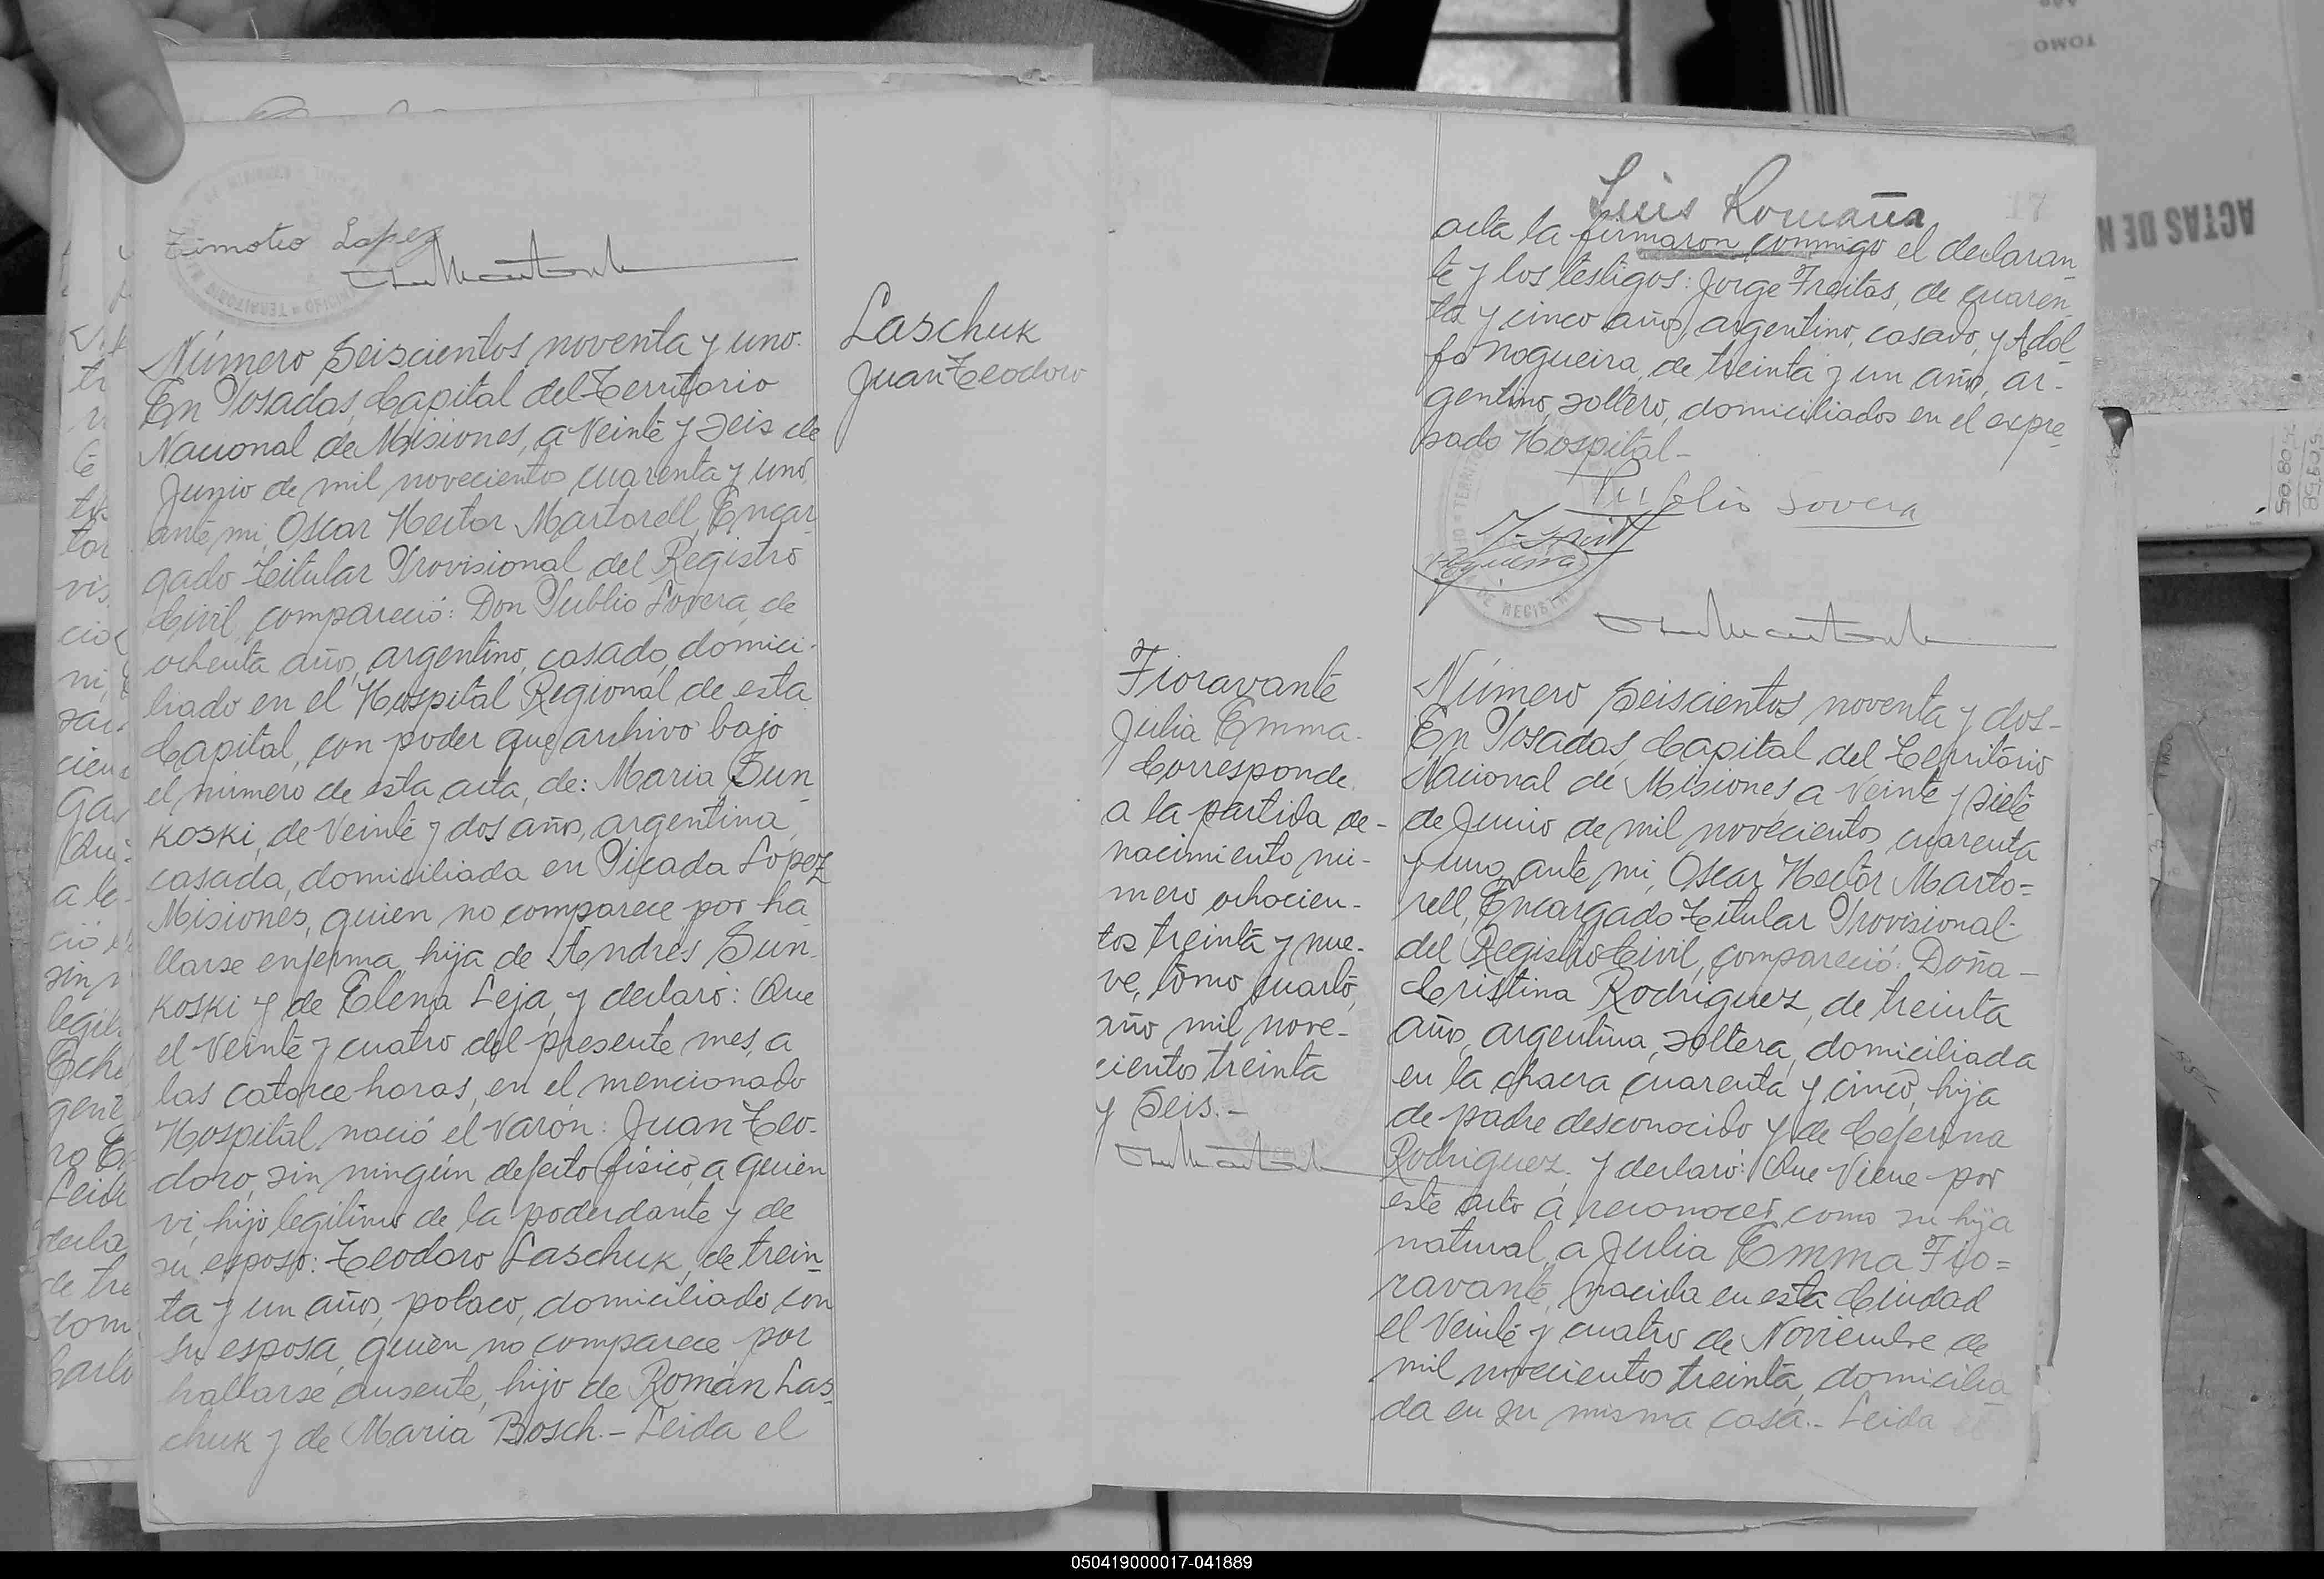 Timoteo Lopez
Número Seiscientos noventa y uno.
En Posadas, Capital del Territorio
Nacional de Misiones, a Veinte y seis de
Junio de mil novecientos cuarenta y uno,
ante mi, Oscar Hector Martorell, Encar-
gado Titular Provisional del Registro
Civil, compareció: Don Publio Sovera, de
ochenta años, argentino, casado, domici-
liado en el Hospital Regional de esta
Capital, con poder que archivo bajo
el número de esta acta, de: Maria Sun-
koski, de Veinte y dos años, argentina,
casada, domiciliada en Picada Lopez
Misiones, quien no comparece por ha-
llarse enferma, hija de Andrés Sun-
koski y de Elena Leja, y declaró: Que
el Veinte y cuatro del presente mes, a
las catorce horas, en el mencionado
Hospital nació el Varón: Juan Teo-
doro, sin ningún defecto físico, a quien
vi, hijo legítimo de la poderdante y de
su esposo: Teodoro Laschuk, de trein-
ta y un años, polaco, domiciliado con
su esposa, quien no comparece por
hallarse ausente, hijo de Román Las-
chuk y de Maria Bosch.- Leida el
Laschuk
Juan Teodoro
Luis Romaña
acta la firmaron conmigo el declaran-
te y los testigos: Jorge Freitas, de cuaren-
ta y cinco años, argentino, casado, y Adol-
fo Nogueira, de treinta y un años, ar-
gentino, soltero, domiciliados en el expre-
sado Hospital.-
Publio Sovera
Nogueira
Fioravante
Julia Emma.
Corresponde
a la partida de-
nacimiento nú-
mero ochocien-
tos treinta y nue-
ve, tomo cuarto,
año mil nove-
cientos treinta
y Seis.-
Número Seiscientos noventa y dos-
En Posadas, Capital del Territorio
Nacional de Misiones a Veinte y siete
de Junio de mil novecientos cuarenta
y uno, ante mi, Oscar Hector Marto=
rell, Encargado Titular Provisional-
del Registro Civil, compareció: Doña-
Cristina Rodriguez, de treinta
años, argentina, soltera, domiciliada
en la chacra cuarenta y cinco, hija
de padre desconocido y de Ceferina
Rodriguez, y declaró: Que Viene por
este acto a reconocer como su hija
natural, a Julia Emma Fio=
ravante, nacida en esta Ciudad
el Veinte y cuatro de Noviembre de
mil novecientos treinta, domicilia-
da en su misma casa.- Leida el
ACTAS DE N
TOMO
050419000017-041889